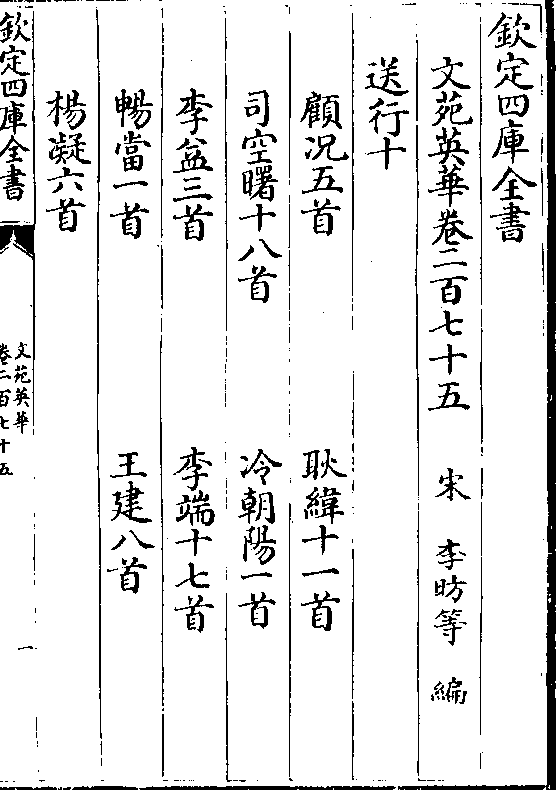 欽定四庫全書
文苑英華卷二百七十五 宋 李昉等 編
送行十
顧况五首 耿緯十一首
司空曙十八首 冷朝陽一首
李益三首 李端十七首
暢當一首 王建八首
楊凝六首
欽定四庫全書
文苑英華
卷二百七十五
一